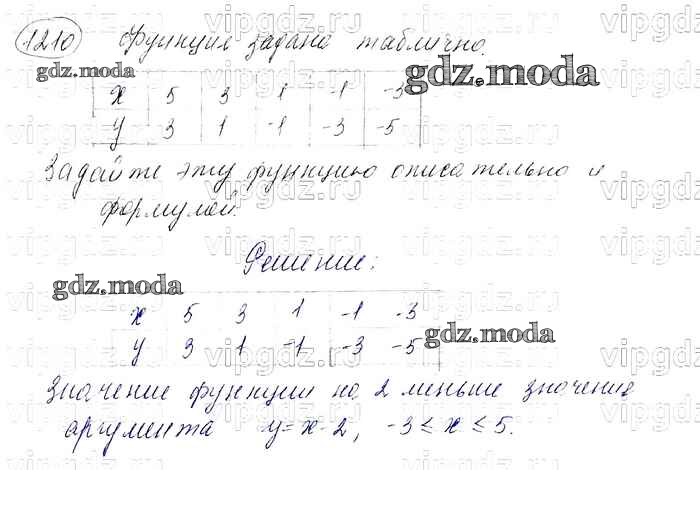 1210 Функция задана таблично.
gdz.moda
gdz.moda
x 5 3 1 -1 -3
y 3 1 -1 -3 -5
Задайте эту функцию описательно и
формулой.
Решение:
gdz.moda
x 5 3 1 -1 -3
y 3 1 -1 -3 -5
gdz.moda
Значение функции на 2 меньше значение
аргумента y=x-2, -3≤x≤5.
vipgdz.ru